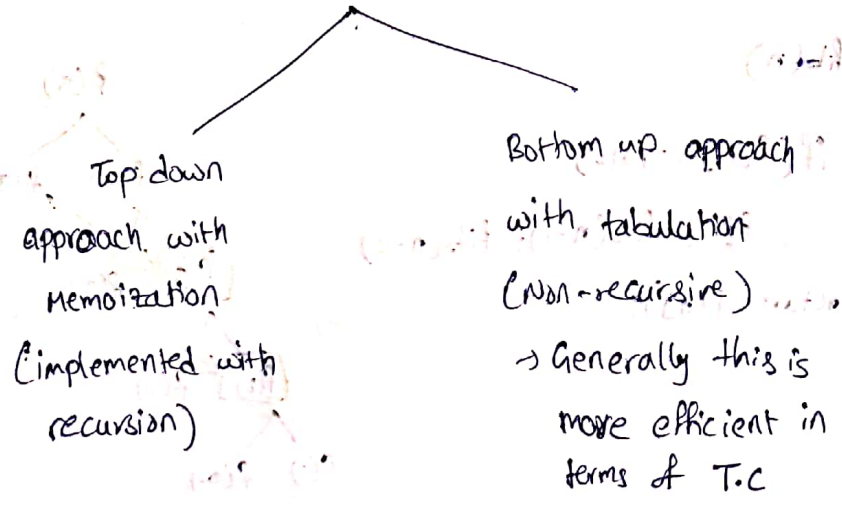 Top down
approach with
Memoization
(implemented with
recursion)
Bottom up approach
with tabulation
(Non-recursive)
→ Generally this is
more efficient in
terms of T.C